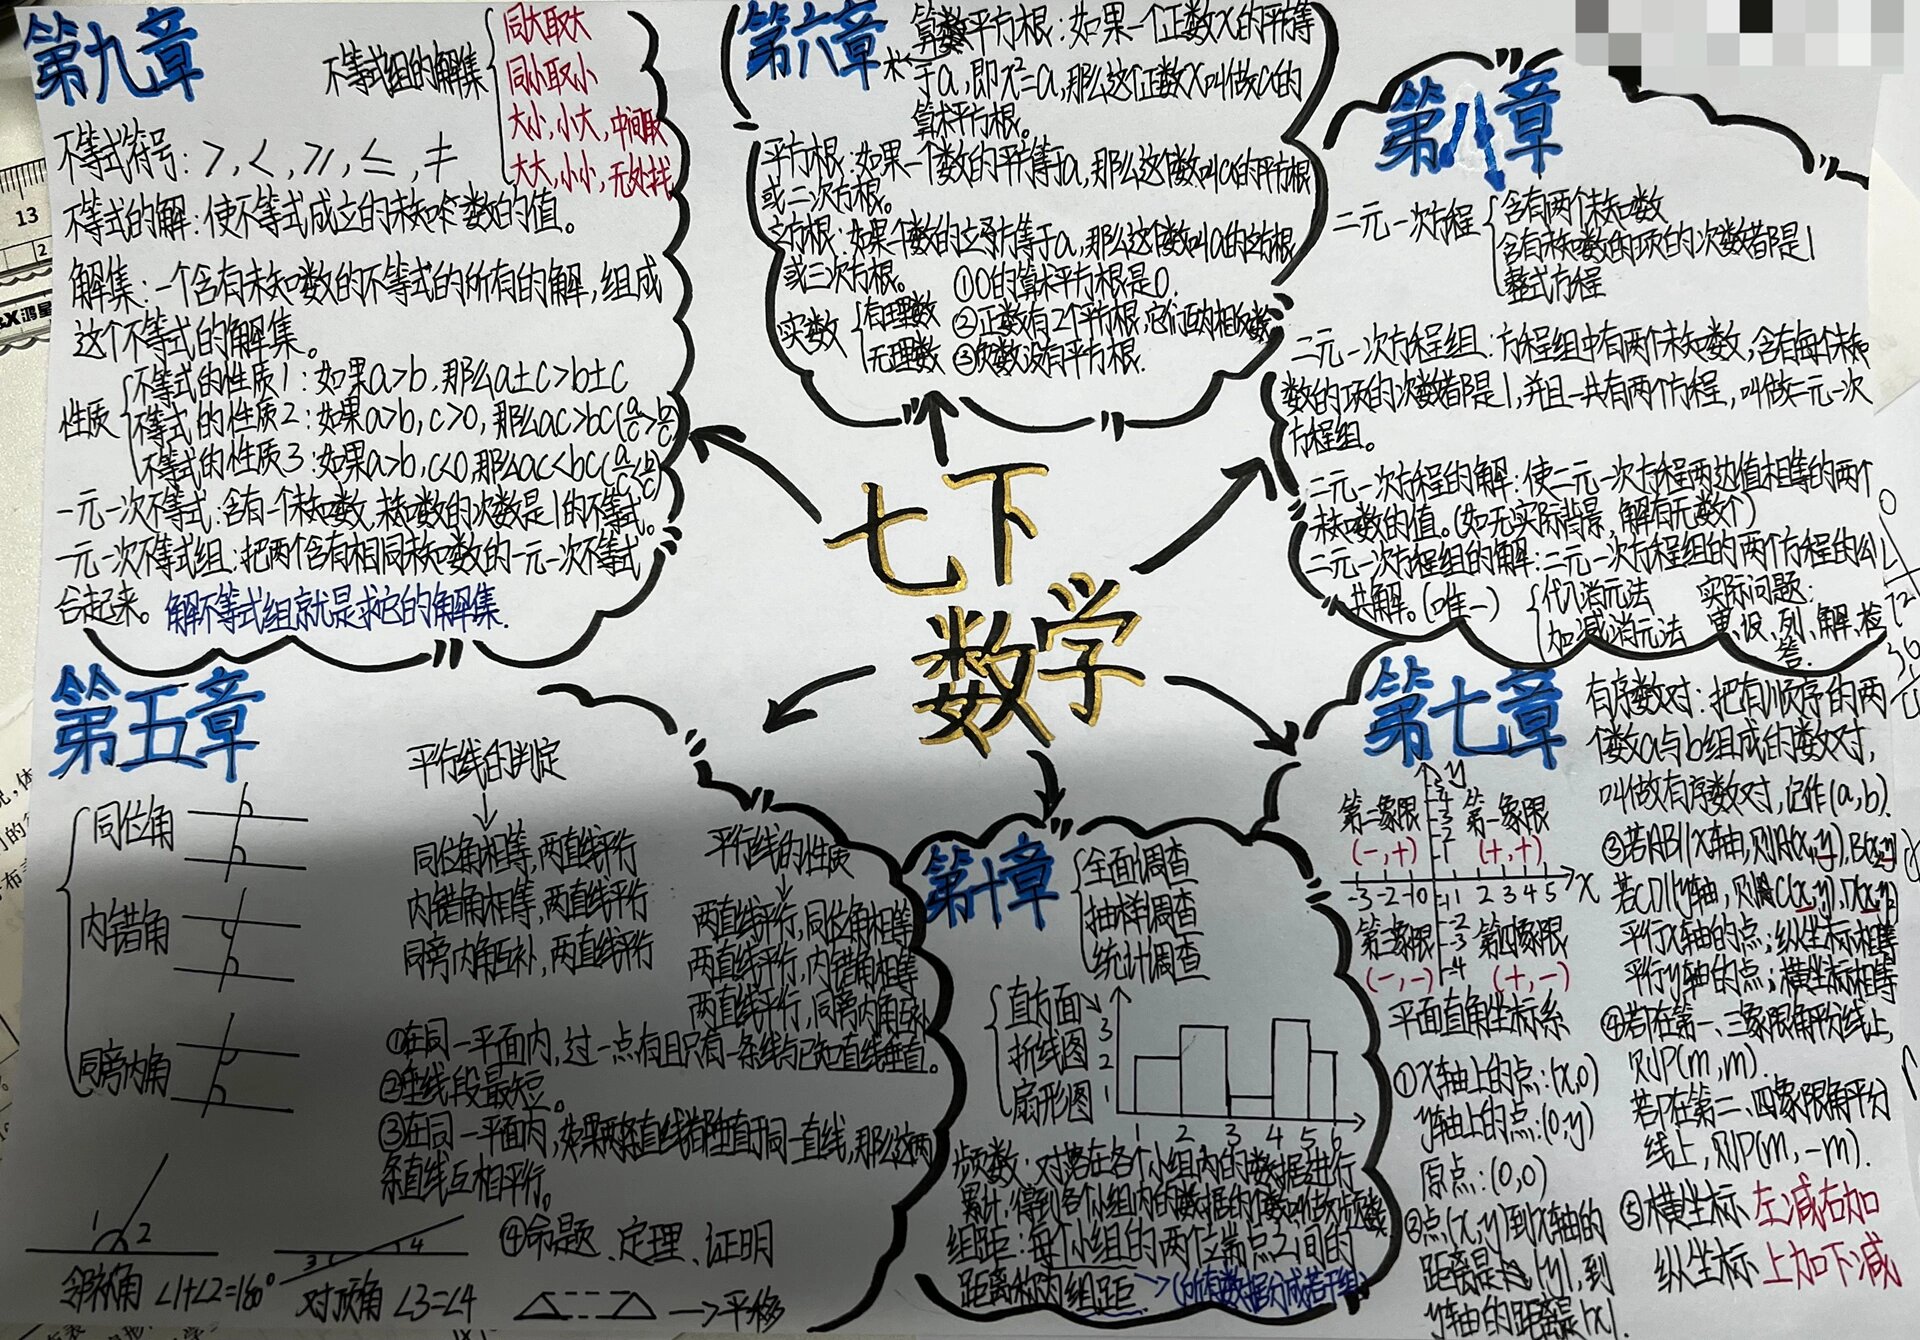 七下
数学
第九章
不等式组的解集
同大取大
同小取小
大小,小大,中间取
大大,小小,无处找
不等式符号:>,<,≥,≤,≠
不等式的解:使不等式成立的未知数的值。
解集:一个含有未知数的不等式的所有的解,组成
这个不等式的解集。
性质
不等式的性质1:如果a>b,那么a±c>b±c
不等式的性质2:如果a>b,c>0,那么ac>bc(a/c>b/c)
不等式的性质3:如果a>b,c<0,那么ac<bc(a/c<b/c)
一元一次不等式:含有一个未知数,未知数的次数是1的不等式。
一元一次不等式组:把两个含有相同未知数的一元一次不等式
合起来。解不等式组就是求它的解集.
第六章
算数平方根:如果一个正数x的平方等
术
于a,即x²=a,那么这个正数x叫做a的
算术平方根。
平方根:如果一个数的平方等于a,那么这个数叫a的平方根
或二次方根。
立方根:如果一个数的立方等于a,那么这个数叫a的立方根
或三次方根。
①0的算术平方根是0.
实数
有理数
无理数
②正数有2个平方根,它们互为相反数
③负数没有平方根.
第八章
二元一次方程
含有两个未知数
含有未知数的项的次数都是1
整式方程
二元一次方程组:方程组中有两个未知数,含有每个未知
数的项的次数都是1,并且一共有两个方程,叫做二元一次
方程组。
二元一次方程的解:使二元一次方程两边值相等的两个
未知数的值。(如无实际背景,解有无数个)
二元一次方程组的解:二元一次方程组的两个方程的公
共解。(唯一)
代入消元法
加减消元法
实际问题:
审、设、列、解、检
答.
第五章
同位角
内错角
同旁内角
平行线的判定
同位角相等,两直线平行
内错角相等,两直线平行
同旁内角互补,两直线平行
平行线的性质
两直线平行,同位角相等
两直线平行,内错角相等
两直线平行,同旁内角互补
①在同一平面内,过一点有且只有一条线与已知直线垂直。
②垂线段最短。
③在同一平面内,如果两条直线都垂直于同一直线,那么这两
条直线互相平行。
④命题、定理、证明
1
2
邻补角 ∠1+∠2=180°
3
4
对顶角 ∠3=∠4
→平移
第十章
全面调查
抽样调查
统计调查
直方面
折线图
扇形图
3
2
1
1 2 3 4 5 6
频数:对落在各个小组内的数据进行
累计,得到各个小组内的数据的个数叫做频数
组距:每个小组的两个端点之间的
距离称为组距→(所有数据分成若干组)
第七章
有序数对:把有顺序的两
个数a与b组成的数对,
叫做有序数对,记作(a,b).
y
4
3
2
1
第二象限
(-,+)
第一象限
(+,+)
-3 -2 -1 0 1 2 3 4 5
x
第三象限
(-,-)
第四象限
(+,-)
-2
-3
-4
平面直角坐标系
①x轴上的点:(x,0)
y轴上的点:(0,y)
原点:(0,0)
②点(x,y)到x轴的
距离是|y|,到
y轴的距离是|x|.
③若AB∥x轴,则A(x,y),B(x,y)
若CD∥y轴,则C(x,y),D(x,y)
平行x轴的点,纵坐标相等
平行y轴的点;横坐标相等
④若P在第一、三象限角平分线上,
则P(m,m).
若P在第二、四象限角平分
线上,则P(m,-m).
⑤横坐标 左减右加
纵坐标 上加下减
13